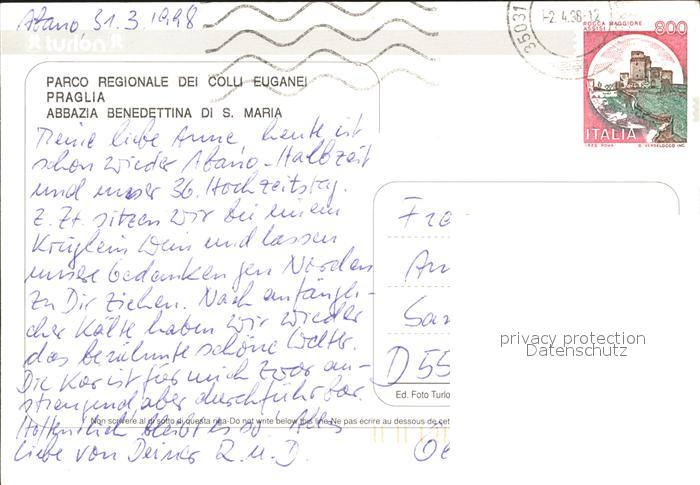 Abano, 31.3.1998
turlon
35031
-2.4.98-12
ROCCA MAGGIORE
ASSISI
800
ITALIA
PARCO REGIONALE DEI COLLI EUGANEI
PRAGLIA
ABBAZIA BENEDETTINA DI S. MARIA
Meine liebe Anne, heute ist
schon wieder Abano-Halbzeit
und unser 36. Hochzeitstag.
Z. Zt. sitzen wir bei einem
Krüglein Wein und lassen
unsere Gedanken gen Norden
zu Dir ziehen. Nach anfängli-
cher Kälte haben wir wieder
das berühmte schöne Wetter.
Die Kur ist für mich zwar an-
strengend aber durchführbar.
Hoffentlich bleibt es so. Alles
Liebe von Deiner R. u. D.
Fra
An
San
D 55
privacy protection
Datenschutz
Ed. Foto Turlo
Non scrivere al di sotto di questa riga-Do not write below this line-Ne pas écrire au dessous de cet